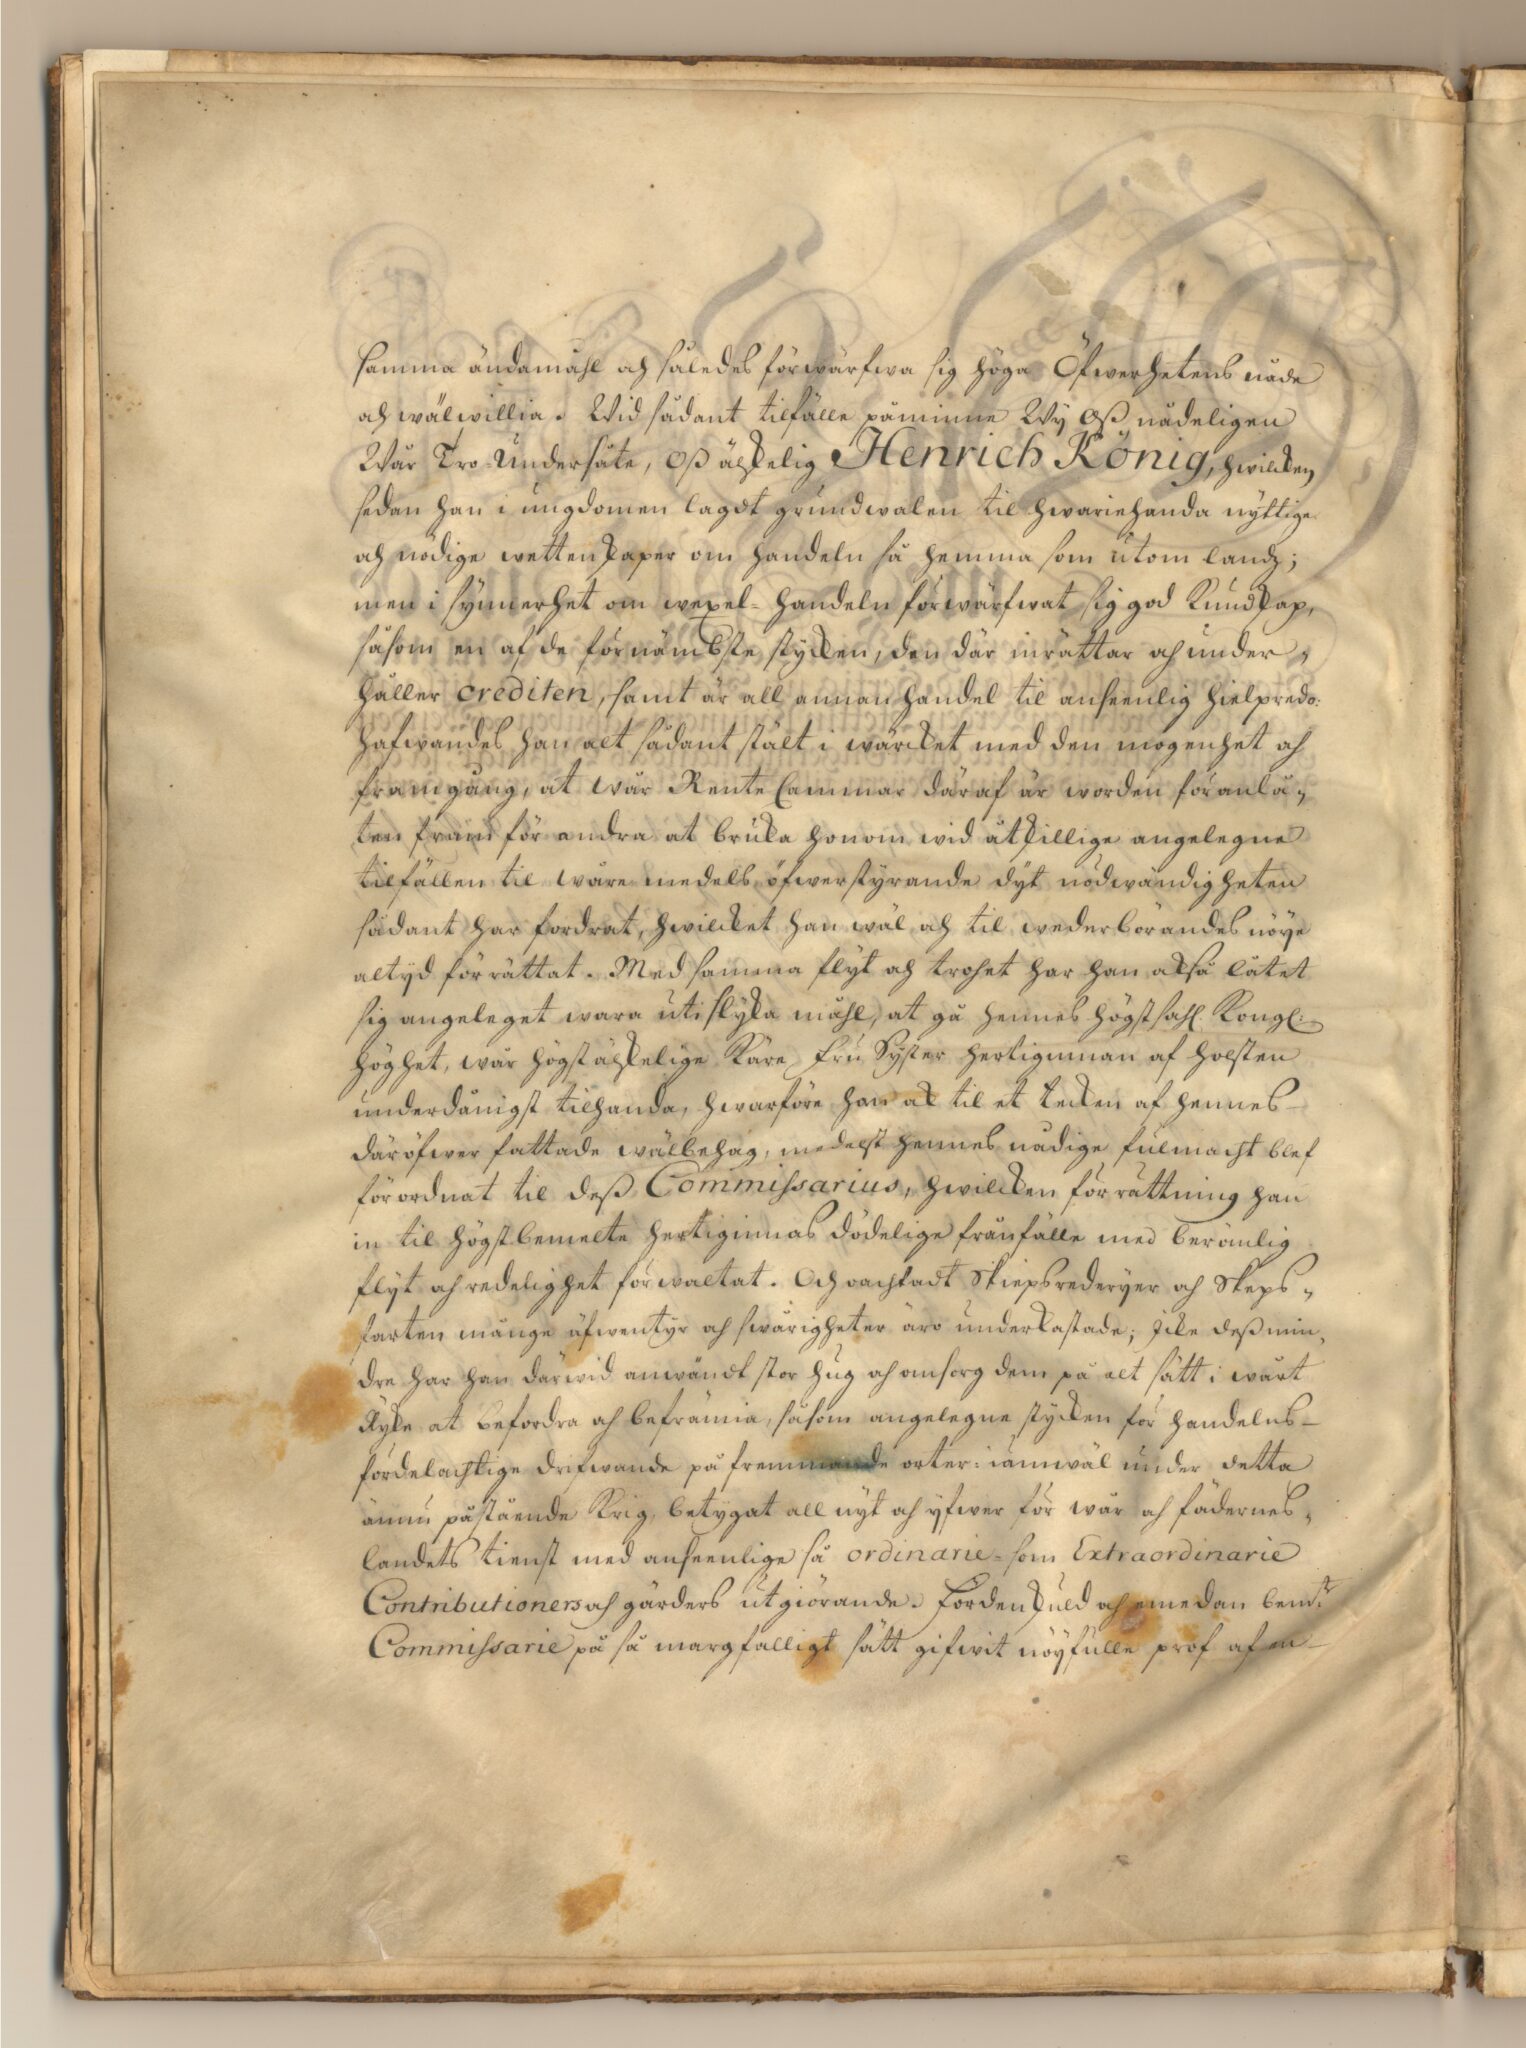 samma ändamåhl och således förwärfwa sig höga Öfwerhetens nåde
och wälwillia. Wid sådant tilfälle påminne Wy Oß nådeligen
Wår Tro-Undersåte, Oß älskelig Henrich König, hwilcken
sedan han i ungdomen lagdt grundwalen til hwariehanda nyttige
och nödige wettenskaper om handeln så hemma som utom landz;
men i synnerhet om wexel-handeln förwärfwat sig god Kundskap,
såsom en af de förnämbste stycken, den där inrättar och under-
håller crediten, samt är all annan handel til anseenlig hielpreda:
hafwandes han alt sådant stält i wärcket med den mogenhet och
framgång, at wår Rente Cammar däraf är worden föranlå-
ten fram för andra at bruka honom wid åtskillige angelegne
tilfällen til wåre medels öfwerstyrande dyt nödwändigheten
sådant har fordrat, hwilcket han wäl och til wederbörandes nöye
altyd förrättat. Med samma flyt och trohet har han också låtet
sig angeläget wara uti slyka måhl, at gå hennes högstsahl. Kongl:
höghet, wår högstälskelige Käre Fru Syster hertiginnan af Holsten
underdånigst tilhanda, hwarföre han ock til et tecken af hennes
däröfwer fattade wälbehag, medelst hennes nådige fulmacht blef
förordnat til deß Commissarius, hwilcken förrättning han
in til högstbemelte hertiginnas dödelige frånfälle med berömlig
flyt och redelighet förwaltat. Och oachtadt Skiepsrederyer och Skeps-
farten månge äfwentyr och swårigheter äro underkastade; Icke deß min-
dre har han därwid anwändt stor hug och omsorg dem på alt sätt i wårt
Ryke at befordra och befrämia, såsom angelegne stycken för handelns
fördelachtige drifwande på fremmande orter: iämwäl under detta
ännu påstående Krig, betygat all nyt och yfwer för wår och fädernes-
landets tienst med anseenlige så ordinarie- som Extraordinarie
Contributioners och gärders utgiörande. Fördenskuld och emedan bem:te
Commissarie på så margfalligt sätt gifwit nöyfulle prof af en